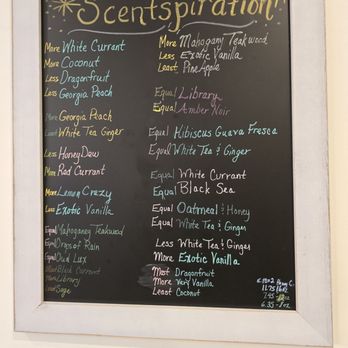 Scentspiration!
More White Currant
More Coconut
Less Dragonfruit
Less Georgia Peach
More Georgia Peach
Least White Tea Ginger
Less HoneyDew
More Red Currant
More Lemon Crazy
Less Exotic Vanilla
Equal Mahogany Teakwood
Equal Drops of Rain
Equal Oud Lux
More Black Currant
More Library
Least Sage
More Mahogany Teakwood
Less Exotic Vanilla
Least Pine Apple
Equal Library
Equal Amber Noir
Equal Hibiscus Guava Fresca
Equal White Tea & Ginger
Equal White Currant
Equal Black Sea
Equal Oatmeal & Honey
Equal White Tea & Ginger
Less White Tea & Ginger
More Exotic Vanilla
Most Dragonfruit
More Very Vanilla
Least Coconut